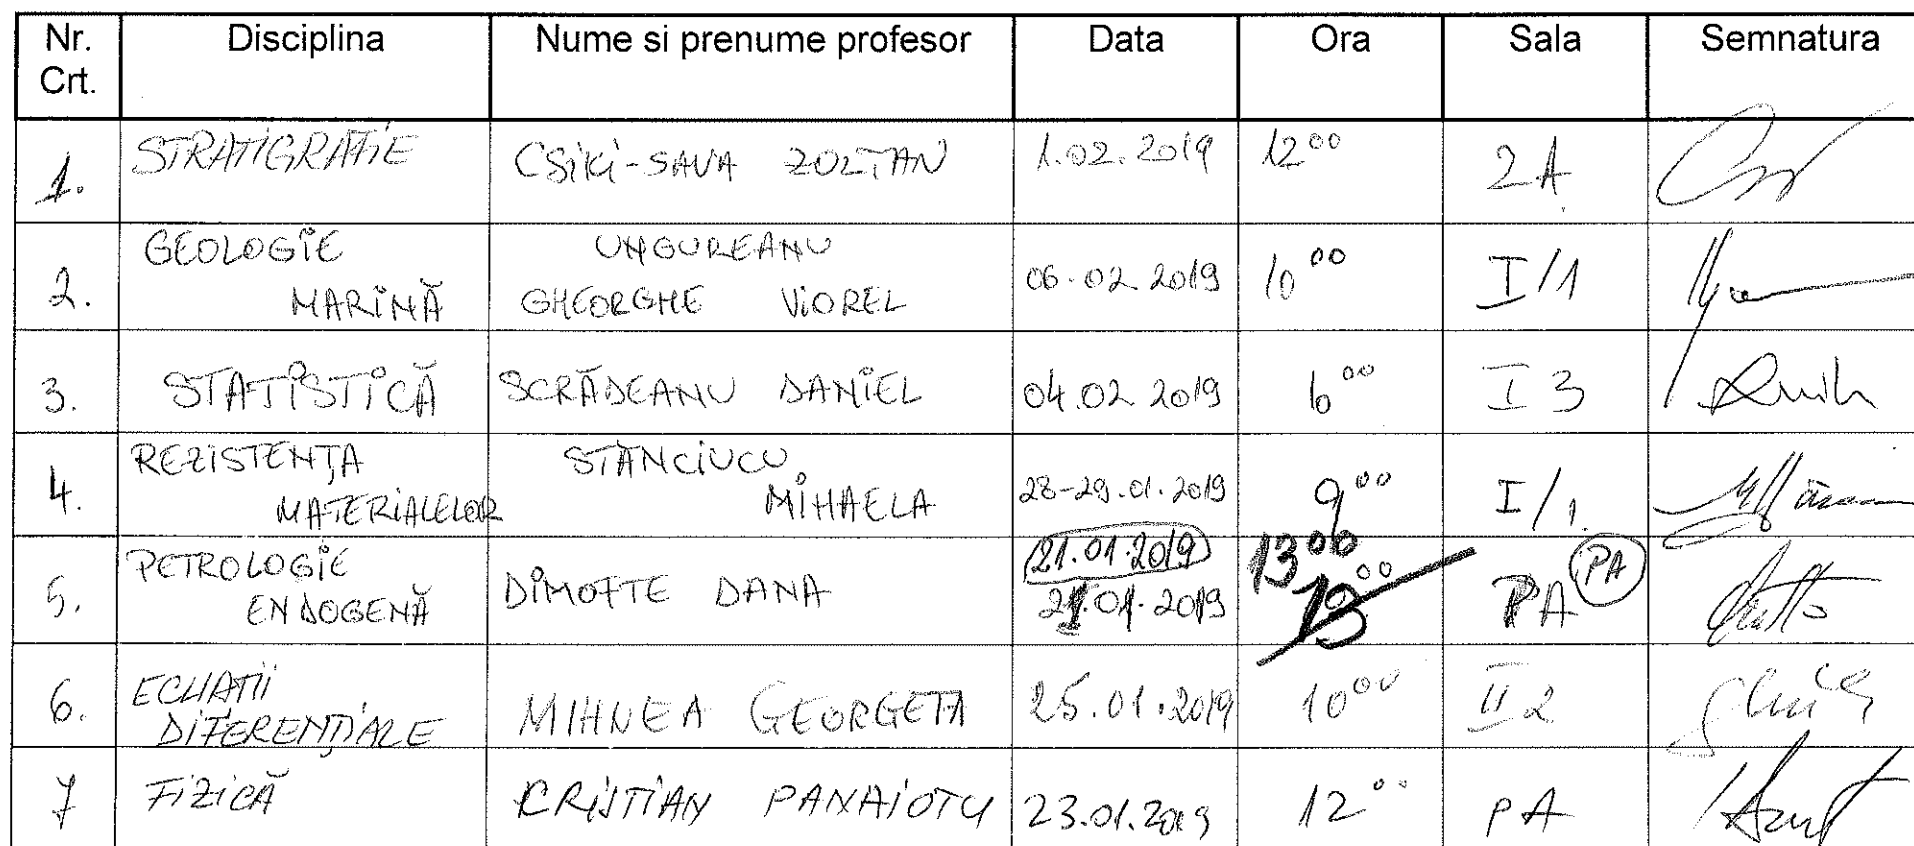 Nr. Crt. Disciplina Nume si prenume profesor Data Ora Sala Semnatura
1. STRATIGRAFIE CSIKI-SAVA ZOLTAN 1.02.2019 12⁰⁰ 2A
GEOLOGIE UNGUREANU
2. MARINĂ GHEORGHE VIOREL 06.02.2019 10⁰⁰ I/1
3. STATISTICĂ SCRĂDEANU DANIEL 04.02.2019 ⁰⁰ I 3
REZISTENȚA STANCIUCU
4. MATERIALELOR MIHAELA 28-29.01.2019 9⁰⁰ I/1
PETROLOGIE 21.01.2019 13⁰⁰ PA
5. ENDOGENĂ DIMOFTE DANA 21.01.2019 ⁰⁰ PA
ECUATII
6. DIFERENȚIALE MIHNEA GEORGETA 25.01.2019 10⁰⁰ II 2
7 FIZICĂ CRISTIAN PANAIOTU 23.01.2019 12⁰⁰ PA